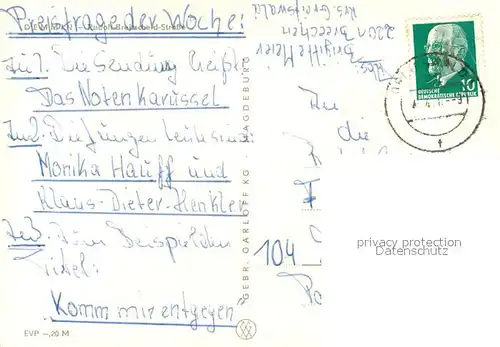 Preisfrage der Woche:
Zu 1. Die Sendung heißt:
Das Notenkarussel
Zu 2. Die jungen Leute sind:
Monika Hauff und
Klaus-Dieter-Henkler
Zu 3. Zum Beispiel den
Titel:
"Komm mir entgegen"
EVP –,20 M
GEBR. GARLOFF KG. MAGDEBURG
Abs.
Brigitte Meier
2201 Brechen
Krs. Greifswald
10
DEUTSCHE
DEMOKRATISCHE REPUBLIK
An
die
104
privacy protection
Datenschutz